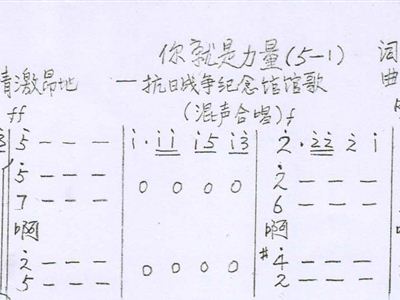 你就是力量(5-1)
词
情激昂地
—抗日战争纪念馆馆歌
曲
ff
(混声合唱) f
5̇ — — — | i̇ · i̇i̇ i̇5 i̇3̇ | 2̇ · 2̇2̇ 2̇ i̇
5̇ — — — | 0 0 0 0 | 2̇ — — —
7 — — — 6 — — —
啊 啊
2̇ — — — | 0 0 0 0 | #4̇ — — —
5 — — — 2 — — —